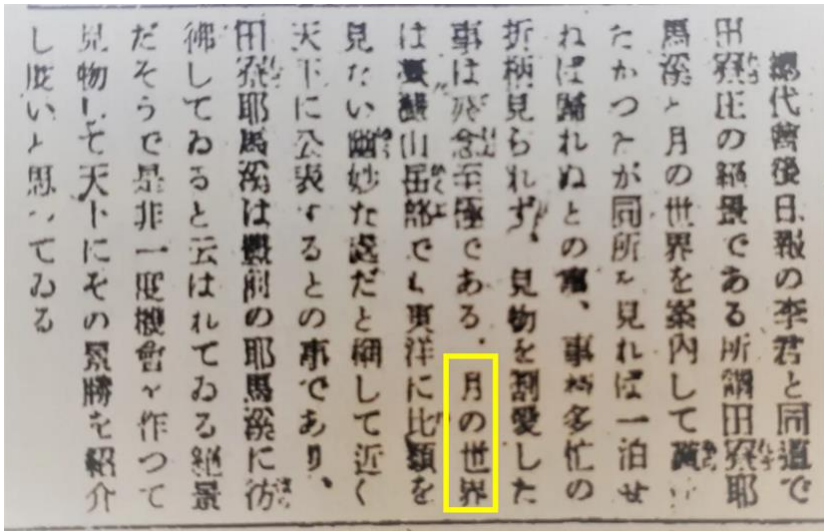 總代會後日報の李君と同道で
田寮庄の絶景である所謂田寮耶
馬溪と月の世界を案内して
たかつたが同所を見れば一泊せ
ねば歸れぬとの事、事務多忙の
折柄見られず、見物を割愛した
事は殘念至極である、月の世界
は臺灣山岳路でも東洋に比類を
見ない幽妙な處だと稱して近く
天下に公表するとの事であり、
田寮耶馬溪は豊前の耶馬溪に彷
彿してゐると云はれてゐる絶景
だそうで是非一度機會を作つて
見物して天下にその景勝を紹介
し度いと思つてゐる